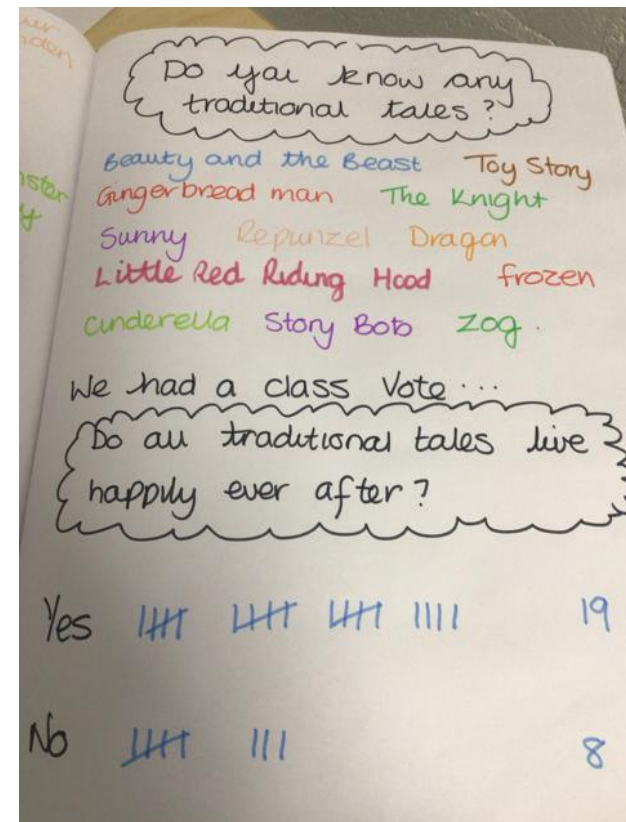 Do you know any
traditional tales?
Beauty and the Beast Toy Story
Gingerbread man The Knight
Sunny Repunzel Dragon
Little Red Riding Hood frozen
cinderella Story Bots Zog.
We had a class Vote...
Do all traditional tales live
happily ever after?
Yes 19
No 8